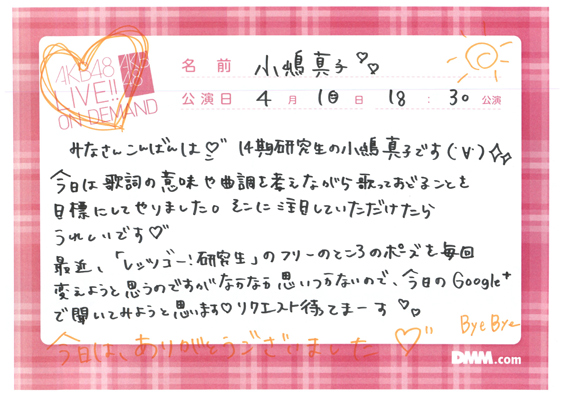 AKB48
LIVE!!
ON DEMAND
AKB
48
名前 小嶋真子♡♡
公演日 4月1日 18:30公演
みなさんこんばんは♡ 14期研究生の小嶋真子です(˙∀˙)☆☆
今日は歌詞の意味や曲調を考えながら歌っておどることを
目標にしてやりました。そこに注目していただけたら
うれしいです♡
最近、「レッツゴー!研究生」のフリーのところのポーズを毎回
変えようと思うのですがなかなか思いつかないので、今日のGoogle+
で聞いてみようと思います♡リクエスト待ってまーす♡♡
Bye Bye
今日は、ありがとうございました♡
DMM.com